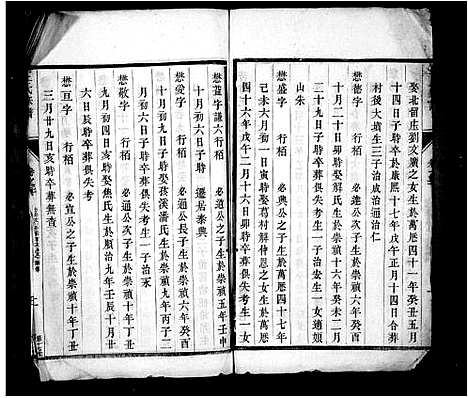 娶北留庄劉文廣之女生於萬厯四十一年癸丑五月
十四日子時卒於康熙十七年戊午正月十四日合葬
村後大墳生三子治成治通治仁
懋德字 行栢 必達公之子生於崇禎十六年癸未二月
十月二十日子時娶解氏生於崇禎十六年癸未二月
二十九日子時卒葬俱失考生一子治宏生一女適頰
山朱
懋盛字 行栢 必學公之子生於萬厯四十七年
己未六月初六日寅時娶葛村解侍恩之女生於萬厯
四十六年戊午二月十六日卯時卒葬俱失考生一女
懋蓮字謙六行栢 必通公之子生於崇禎五年壬申
十月初六日子時 遷居泰興
懋愛字 行栢 必通公長子生於崇禎六年癸酉
十月初六日子時娶孩溪潘氏生於崇禎十年丁丑
月初六日子時卒葬俱失考生一子治永
懋敬字 行栢 必通公次子生於崇禎六年癸酉
九月初四日子時娶焦氏生於順治九年壬辰十月廿
六日辰時卒葬俱失考
懋亘字 行栢 必宜公之子生於崇禎十年丁丑
三月廿九日亥時卒葬無查
氏宗譜